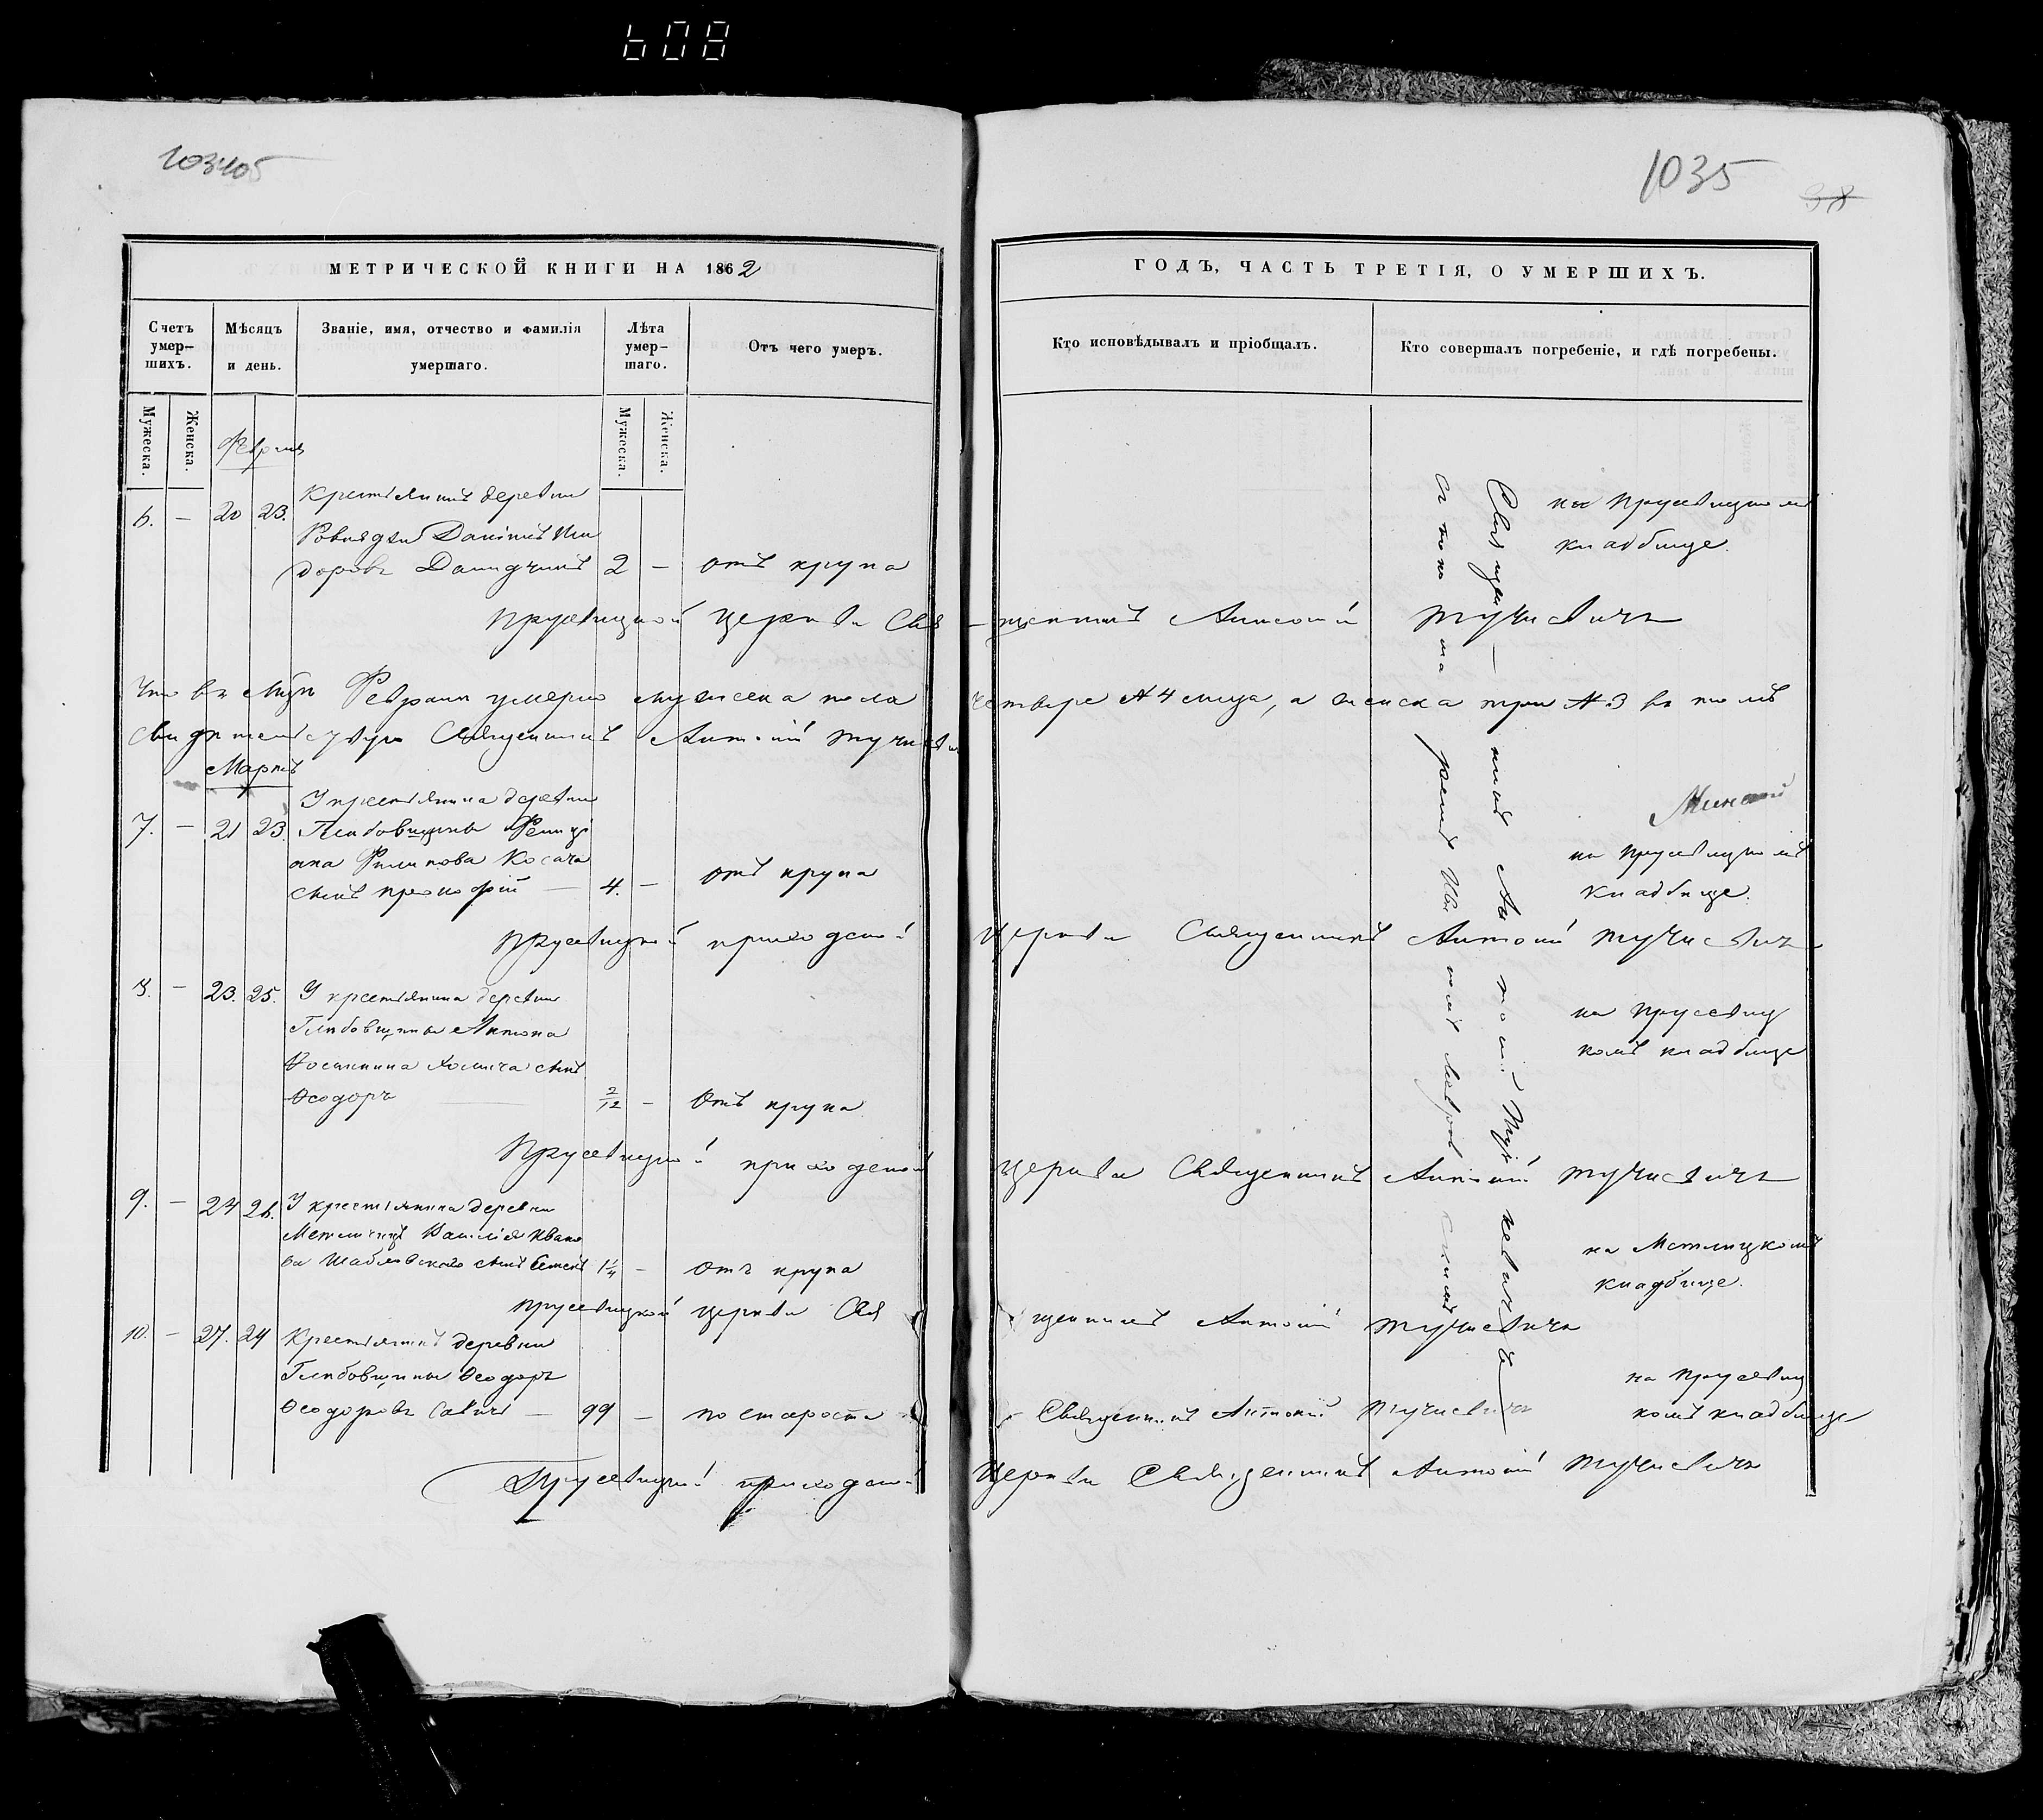 608
103405
1035
38
МЕТРИЧЕСКОЙ КНИГИ НА 1862
ГОДЪ, ЧАСТЬ ТРЕТІЯ, О УМЕРШИХЪ.
Счетъ умер-шихъ.
Мѣсяцъ и день.
Званіе, имя, отчество и фамилія умершаго.
Лѣта умер-шаго.
Отъ чего умеръ.
Кто исповѣдывалъ и пріобщалъ.
Кто совершалъ погребеніе, и гдѣ погребены.
Мужеска.
Женска.
Мужеска.
Женска.
Февраля
6. — 20 23. Крестьянинъ деревни
Даніилъ
2 — отъ крупа
на Прусевицкомъ
кладбище.
Прусевицкой церкви Свя-щенникъ Антоній Тучкевичъ
Что въ Февралѣ умерло мужеска пола четыре № 4 лица, а женска три № 3 въ томъ
свидѣтельствую Священникъ Антоній
Мартъ
7. — 21 23. У крестьянина деревни
Глибовщины
Филипова Косача
сынъ Прокофій — 4. — отъ крупа
на Прусевицкомъ
кладбище.
Прусевицкой приходской церкви Священникъ Антоній Тучкевичъ
8. — 23. 25. У крестьянина деревни
Глибовщины Антона
сынъ
Ѳеодоръ — 2/12 — Отъ крупа
на Прусевиц
комъ кладбище
Прусевицкой приходской церкви Священникъ Антоній Тучкевичъ
9. — 24 26. У крестьянина деревни
Ивано
ва Шабловскаго сынъ 1 1/4 — Отъ крупа
на Метлицкомъ
кладбище.
Прусевицкой церкви Свя щенникъ Антоній Тучкевичъ
10. — 27. 29 Крестьянинъ деревни
Глибовщины Ѳеодоръ
Ѳеодоровъ Савичъ — 99 — по старости
Священникъ Антоній Тучкевичъ
на Прусевиц
комъ кладбище
Прусевицкой приходской церкви Священникъ Антоній Тучкевичъ
Священникъ Антоній Тучкевичъ